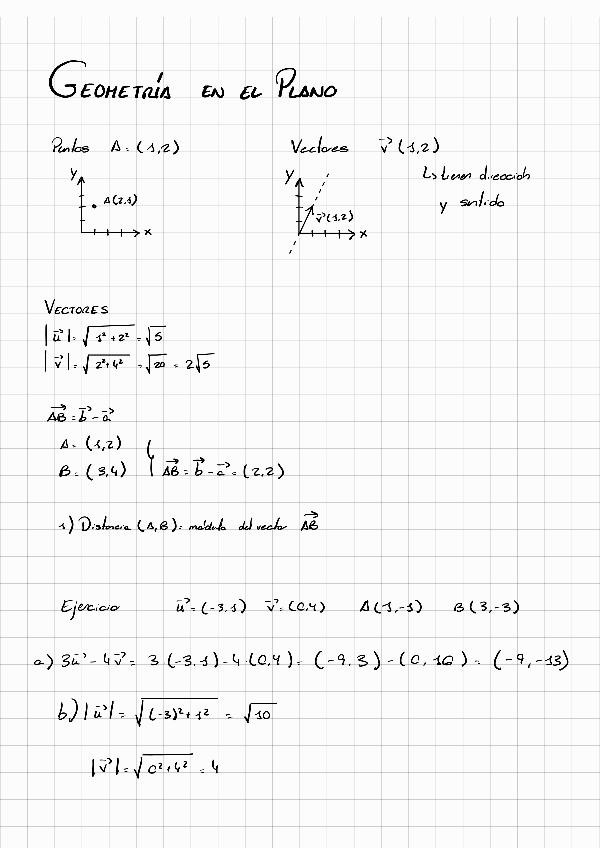 GEOMETRÍA EN EL PLANO
Puntos A = (1,2) Vectores v⃗ (1,2)
y A(2,1) x
y v⃗(1,2) x
↳ tienen dirección
y sentido
VECTORES
|u⃗| = √(1² + 2²) = √5
|v⃗| = √(2² + 4²) = √20 = 2√5
AB⃗ = b⃗ - a⃗
A = (1,2)
B = (3,4) AB⃗ = b⃗ - a⃗ = (2,2)
1) Distancia (A,B) = módulo del vector AB⃗
Ejercicio u⃗ = (-3,1) v⃗ = (0,4) A(1,-1) B(3,-3)
a) 3u⃗ - 4v⃗ = 3·(-3,1) - 4·(0,4) = (-9,3) - (0,16) = (-9,-13)
b) |u⃗| = √((-3)² + 1²) = √10
|v⃗| = √(0² + 4²) = 4